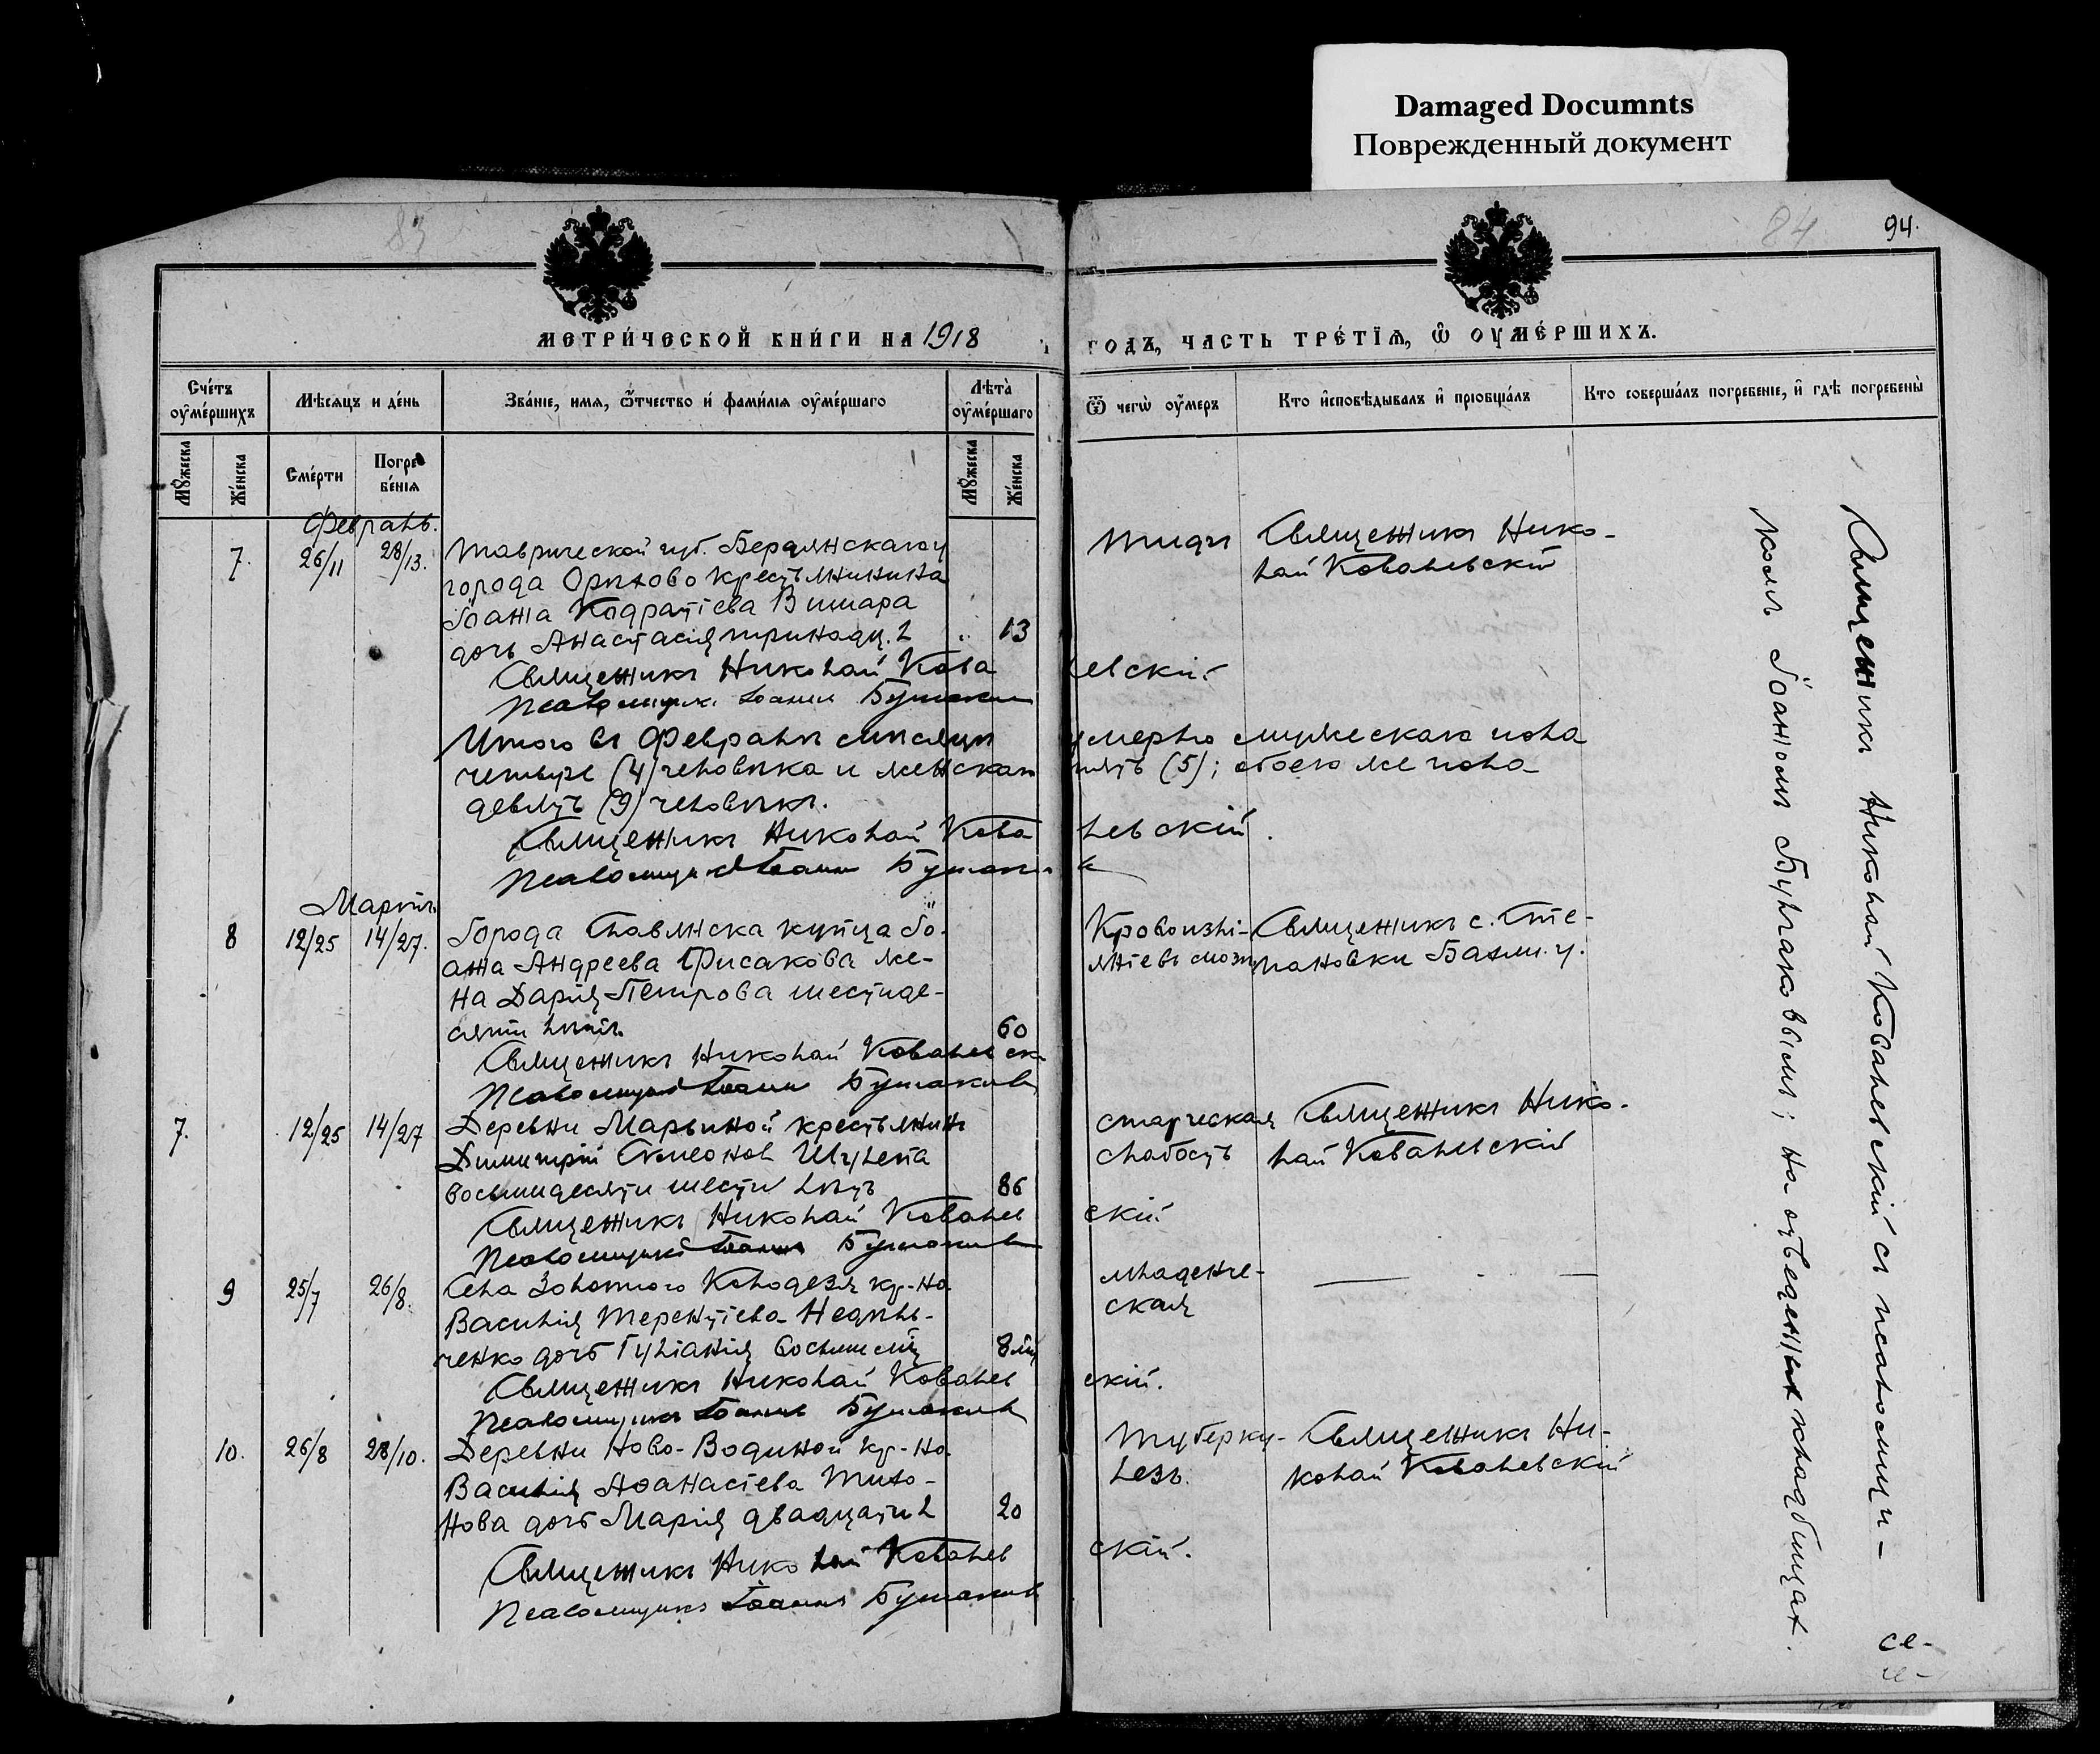 Damaged Documnts
Поврежденный документ
83
84
94.
МЕТРИ́ЧЕСКОЙ КНИ́ГИ НА 1918
ГОДЪ, ЧАСТЬ ТРЕ́ТЇѦ, Ѡ҆ ОУМЕ́РШИХЪ.
Сче́тъ оуме́ршихъ
Мѣ́сѧцъ и де́нь
Зва́нїе, имѧ, ѻтчество и фами́лїѧ оуме́ршаго
Лѣта̀ оуме́ршаго
Ѿ чегѡ̀ оу́меръ
Кто и҆сповѣ́дывалъ и҆ прїобща́лъ
Кто соверша́лъ погребенїе, и҆ гдѣ̀ погребены̀
Мꙋжеска
Же́нска
Сме́рти
Погребе́нїѧ
Мꙋжеска
Же́нска
Февраль.
7. 26/11 28/13. Таврической губ. Бердянскаго у
города Орѣхово крестьянина
Іоанна
дочь Анастасія тринадц. л 13
тифъ
Священникъ Нико-
лай Ковалевскій
Священникъ Николай Ковалевскій.
Псаломщикъ Іоаннъ
Итого въ Февралѣ мѣсяцѣ умерло мужескаго пола
четыре (4) человѣка и женскаго пять (5); обоего же пола
девять (9) человѣкъ.
Священникъ Николай Ковалевскій.
Псаломщикъ Іоаннъ
Мартъ.
8 12/25 14/27. Города Славянска купца Іо-
анна Андреева Фисакова же-
на Дарія Петрова шестиде-
сяти лѣтъ. 60
Кровоизлі-
яніе въ мозгъ
Священникъ с. Сте-
пановки Бахм. у.
Священникъ Николай Ковалевск
Псаломщикъ Іоаннъ
7. 12/25 14/27 Деревни Марьиной крестьянинъ
Димитрій Симеоновъ
восьмидесяти шести лѣтъ 86
старческая
слабость
Священникъ Нико-
лай Ковалевскій
Священникъ Николай Ковалевскій
Псаломщикъ Іоаннъ
9 25/7 26/8. Села Золотого Колодезя кр-на
Василія Терентіева Недѣль-
ченко дочь Іуліанія восьми мѣс 8 мѣс
младенче-
ская
Священникъ Николай Ковалевскій.
Псаломщикъ Іоаннъ
10. 26/8 28/10. Деревни Ново-Водиной кр-на
Василія Аѳанасіева Тихо-
нова дочь Марія двадцати л 20
Туберку-
лезъ.
Священникъ Ни-
колай Ковалевскій
Священникъ Николай Ковалевскій.
Псаломщикъ Іоаннъ
Священникъ Николай Ковалевскій съ псаломщи-
комъ Іоанномъ Булгаковымъ; на отведенныхъ кладбищах.
се-